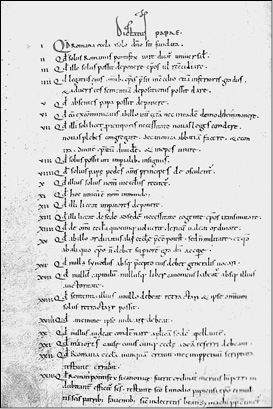 Dictatus papae.
I Qd Romana eccla a solo dno sit fundata.
II Qd solus Romanus pontifex iure dicat universalis.
III Qd ille solus possit deponere epos ut reconciliare.
IIII Qd legatus eius omib; epis presit in concilio etiam inferioris gradus
& adversus eos sententiam depositionis possit dare.
V Qd absentes papa possit deponere.
VI Qd cu excommunicatis ab illo int cetera nec in eade domo debem manere.
VII Qd illi soli licet p temporis necessitate novas leges condere,
novas plebes congregare, de canonica abbatia facere & econtra,
divite epatu dividere & inopes unire.
VIII Qd solus possit uti imperialib; insigniis.
VIIII Qd solius pape pedes oms principes deosculent.
X Qd illius solius nom in ecclis recitet.
XI Qd hoc unicu e nom in mundo.
XII Qd illi liceat imperatores deponere.
XIII Qd illi liceat de sede ad sede necessitate cogente epos transmutare.
XIIII Qd de omi eccla quocumq; voluerit clericu valeat ordinare.
XV Qd ab illo ordinatus alii eccle pee potest, sed n militare; et qd
ab aliquo epo n debet superiore gradu accipe.
XVI Qd nulla synodus absq; pcepto eius debet generalis vocari.
XVII Qd nullu capitulu nullusq; liber canonicus habeat absq; illius
auctoritate.
XVIII Qd sententia illius a nullo debeat retractari & ipse omium
solus retractare possit.
XVIIII Qd a nemine ipse iudicari debeat.
XX Qd nullus audeat condemnare aplica sede apellante.
XXI Qd maiores cause cuiuscumq; eccle ad ea referri debeant.
XXII Qd Romana eccla nunqua erravit nec imppetuu scriptura
testante errabit.
XXIII Qd Romanus pontifex si canonice fuerit ordinatus meritis b petri in
dubitanter efficit scs testante sco Ennodio papiensi epo ei multis